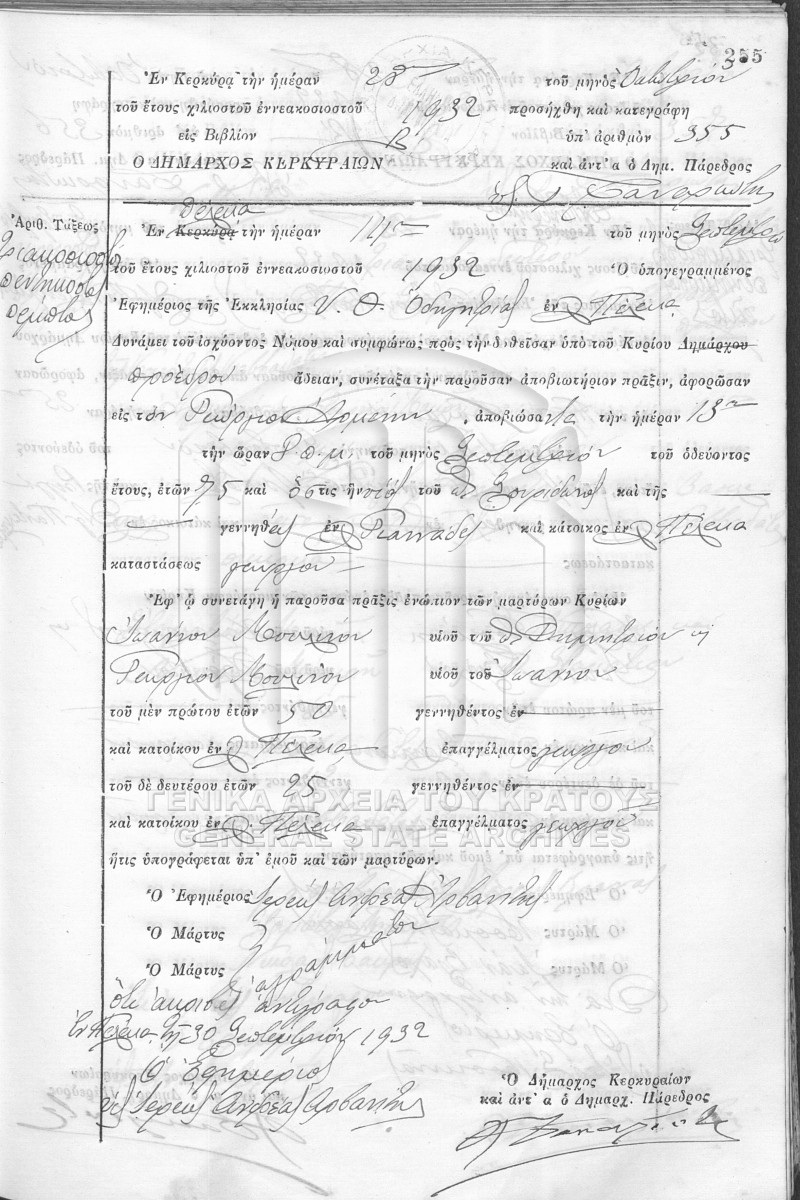 355
Ἐν Κερκύρᾳ τὴν ἡμέραν 28ην τοῦ μηνὸς Ὀκτωβρίου
τοῦ ἔτους χιλιοστοῦ ἐννεακοσιοστοῦ 1932 προσήχθη καὶ κατεγράφη
εἰς Βιβλίον Β ὑπ' ἀριθμὸν 355
Ο ΔΗΜΑΡΧΟΣ ΚΕΡΚΥΡΑΙΩΝ καὶ ἀντ' α ὁ Δημ. Πάρεδρος
Πέλεκα
Ἀριθ. Τάξεως Ἐν Κερκύρᾳ τὴν ἡμέραν 14ην τοῦ μηνὸς Σεπτεμβρίου
τριακοσιοστὸν
πεντηκοστὸν
πέμπτον
τοῦ ἔτους χιλιοστοῦ ἐννεακοσιοστοῦ 1932 Ὁ ὑπογεγραμμένος
Ἐφημέριος τῆς Ἐκκλησίας Υ. Θ. Ὁδηγητρίας ἐν Πέλεκα
Δυνάμει τοῦ ἰσχύοντος Νόμου καὶ συμφώνως πρὸς τὴν δοθεῖσαν ὑπὸ τοῦ Κυρίου Δημάρχου
προέδρου ἄδειαν, συνέταξα τὴν παροῦσαν ἀποβιωτήριον πρᾶξιν, ἀφορῶσαν
εἰς τὸν Γεώργιον Ἀρμένην, ἀποβιώσαντα τὴν ἡμέραν 13ην
τὴν ὥραν 8 π.μ. τοῦ μηνὸς Σεπτεμβρίου τοῦ ὁδεύοντος
ἔτους, ἐτῶν 75 καὶ ὅστις ἦν υἱὸς τοῦ Σπυρίδωνος καὶ τῆς
γεννηθεὶς ἐν Γιαννάδες καὶ κάτοικος ἐν Πέλεκα
καταστάσεως γεωργοῦ
Ἐφ' ᾧ συνετάγη ἡ παροῦσα πρᾶξις ἐνώπιον τῶν μαρτύρων Κυρίων
Ἰωάννου Μουλίνου υἱοῦ τοῦ Δημητρίου
Γεωργίου Μουλίνου υἱοῦ τοῦ Ἰωάννου
τοῦ μὲν πρώτου ἐτῶν 50 γεννηθέντος ἐν
καὶ κατοίκου ἐν Πέλεκα ἐπαγγέλματος γεωργοῦ
τοῦ δὲ δευτέρου ἐτῶν 25 γεννηθέντος ἐν
καὶ κατοίκου ἐν Πέλεκα ἐπαγγέλματος γεωργοῦ
ἥτις ὑπογράφεται ὑπ' ἐμοῦ καὶ τῶν μαρτύρων.
ΓΕΝΙΚΑ ΑΡΧΕΙΑ ΤΟΥ ΚΡΑΤΟΥΣ
GENERAL STATE ARCHIVES
Ὁ Ἐφημέριος Ἱερεὺς Ἀνδρέας Ἀρβανίτης
Ὁ Μάρτυς
Ὁ Μάρτυς ἀγράμματοι
ὅτι ἀκριβὲς ἀντίγραφον
Ἐν Πέλεκα τῇ 30 Σεπτεμβρίου 1932
Ὁ Ἐφημέριος
Ἱερεὺς Ἀνδρέας Ἀρβανίτης
Ὁ Δήμαρχος Κερκυραίων
καὶ ἀντ' α ὁ Δημαρχ. Πάρεδρος